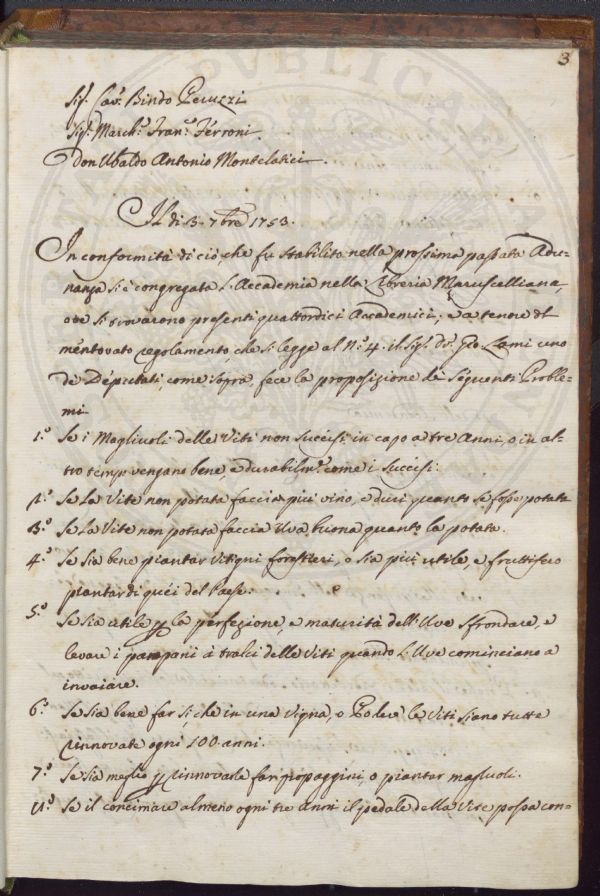 3
Sig.r Cav.r Bindo Peruzzi
Sig.r March.e Fran.o Ferroni
Don Ubaldo Antonio Montelatici
Il di 13. 7bre 1753.
In conformità di ciò, che fu stabilito nella prossima passata Adu-
nanza si è congregata l'Accademia nella Libreria Maruscelliana,
ove si trovarono presenti quattordici Accademici; e a tenore del
mentovato regolamento, che si legge al N.o 4. il Sig.r D.r Gio. Lami uno
de' Deputati, come sopra, fece la proposizione dei seguenti Proble-
mi
1.o Se i Magliuoli delle Viti non succisi in capo a tre Anni, o in al-
tro tempo vengano bene, e durabilm.te come i succisi:
2.o Se La Vite non potata faccia più vino, e duri quanto se fosse potata
3.o Se La Vite non potata faccia Uva buona quanto la potata.
4.o Se Sia bene piantar Vitigni forestieri, o sia più utile, e fruttifero
piantar di quei del Paese.
5.o Se Sia utile p la perfezione, e maturità dell'Uve sfrondare, e
levare i pampani a' tralci delle Viti quando l'Uve cominciano a
invaiare.
6.o Se Sia bene far sì, che in una Vigna, o Podere le Viti siano tutte
rinnovate ogni 100. anni.
7.o Se Sia meglio p rinnovarle far propaggini, o piantar magluoli.
8.o Se il concimare almeno ogni tre anni il pedale della Vite possa con-
PUBLICAE